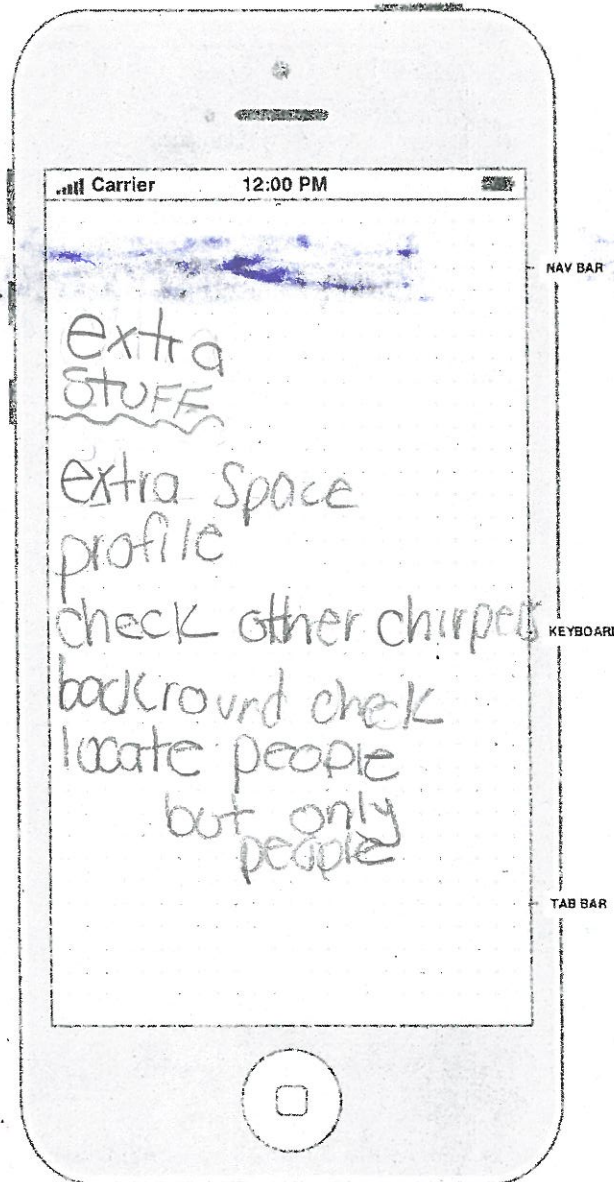 Carrier 12:00 PM
NAV BAR
extra
STUFF
extra space
profile
check other chirpers
KEYBOARD
backround check
locate people
but only
people
TAB BAR